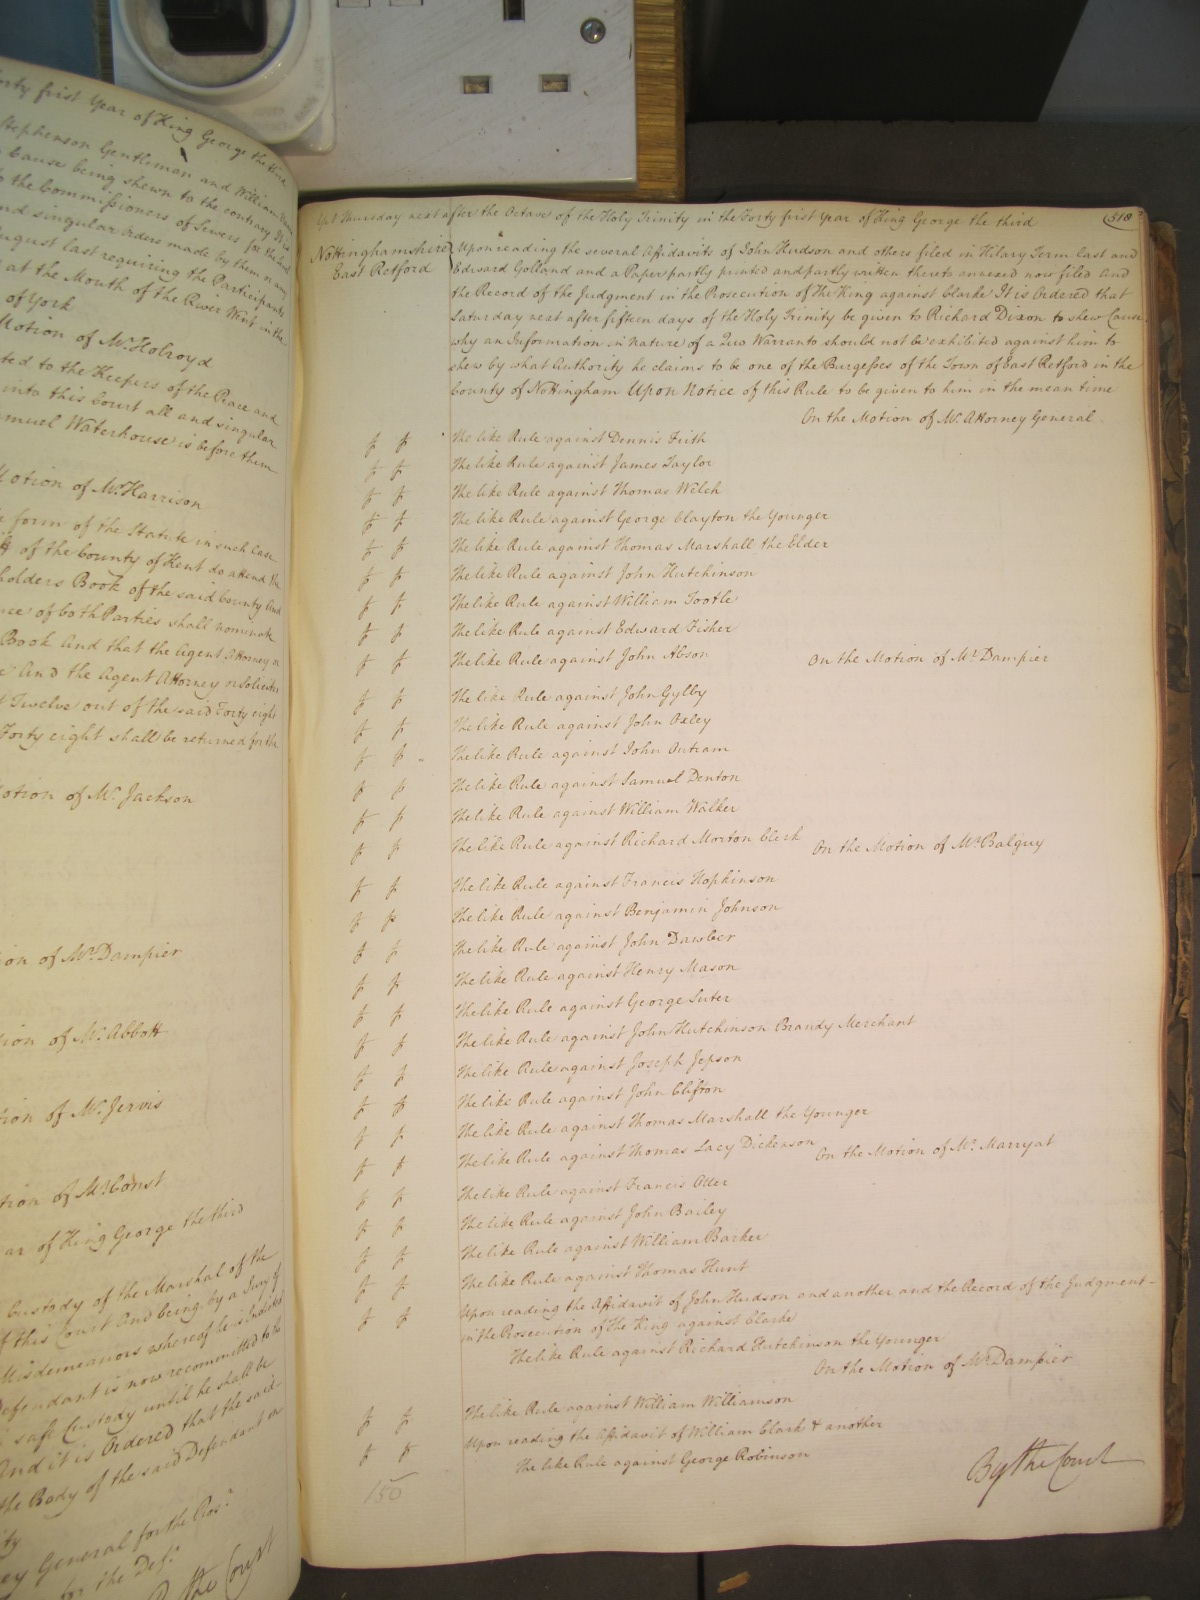 forty first Year of King George the third
Stephenson Gentleman and William
Cause being shewn to the contrary It is
to the Commissioners of Sewers for the
and singular Orders made by them or any
August last requiring the Participants
at the Mouth of the River Went in the
of York
Motion of Mr. Holroyd
ted to the Keepers of the Peace and
into this Court all and singular
muel Waterhouse is before them
Motion of Mr. Harrison
form of the Statute in such Case
of the County of Kent do attend the
holders Book of the said County And
nce of both Parties shall nominate
Book And that the Agent Attorney or
And the Agent Attorney or Solicitor
Twelve out of the said Forty eight
Forty eight shall be returned for the
Motion of Mr. Jackson
ion of Mr. Dampier
tion of Mr. Abbott
tion of Mr. Jervis
tion of Mr. Const
ar of King George the third
Custody of the Marshal of the
f this Court And being by a Jury of
Misdemeanors whereof he is Indicted
Defendant is now recommitted to the
safe Custody until he shall be
And it is Ordered that the said
the Body of the said Defendant
ty
ey General for the Pros.r
for the Def.t
By the Court
Yet Thursday next after the Octave of the Holy Trinity in the Forty first Year of King George the third
518
Nottinghamshire
East Retford
Upon reading the several Affidavits of John Hudson and others filed in Hilary Term last and
Edward Golland and a Paper partly printed and partly written thereto annexed now filed and
the Record of the Judgment in the Prosecution of The King against Clarke It is Ordered that
Saturday next after fifteen days of the Holy Trinity be given to Richard Dixon to shew Cause
why an Information in nature of a Quo Warranto should not be exhibited against him to
shew by what Authority he claims to be one of the Burgesses of the Town of East Retford in the
County of Nottingham Upon Notice of this Rule to be given to him in the mean time
On the Motion of Mr. Attorney General
The like Rule against Dennis Frith
The like Rule against James Taylor
The like Rule against Thomas Welch
The like Rule against George Clayton the Younger
The like Rule against Thomas Marshall the Elder
The like Rule against John Hutchinson
The like Rule against William Tootle
The like Rule against Edward Fisher
The like Rule against John Abson On the Motion of Mr. Dampier
The like Rule against John Gylby
The like Rule against John Oxley
The like Rule against John Outram
The like Rule against Samuel Denton
The like Rule against William Walker
The like Rule against Richard Morton Clerk On the Motion of Mr. Balguy
The like Rule against Francis Hopkinson
The like Rule against Benjamin Johnson
The like Rule against John Dawber
The like Rule against Henry Mason
The like Rule against George Suter
The like Rule against John Hutchinson Brandy Merchant
The like Rule against Joseph Jepson
The like Rule against John Clifton
The like Rule against Thomas Marshall the Younger
The like Rule against Thomas Lacy Dickenson On the Motion of Mr. Marryat
The like Rule against Francis Otter
The like Rule against John Bailey
The like Rule against William Barker
The like Rule against Thomas Hunt
Upon reading the Affidavit of John Hudson and another and the Record of the Judgment
in the Prosecution of The King against Clarke
The like Rule against Richard Hutchinson the Younger
On the Motion of Mr. Dampier
The like Rule against William Williamson
Upon reading the Affidavit of William Clark & another
The like Rule against George Robinson
By the Court
150